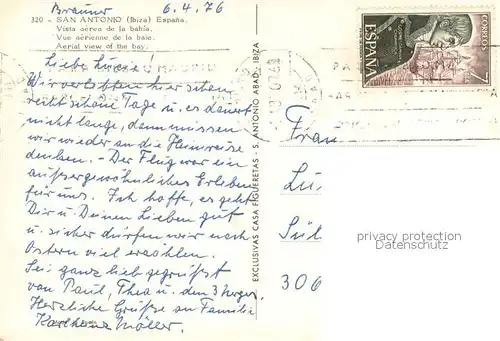 Brauner 6.4.76
320 - SAN ANTONIO (Ibiza) España.
Vista aérea de la bahía.
Vue aérienne de la baie.
Aerial view of the bay.
Liebe Lucie!
Wir verlebten hier schon
recht schöne Tage u. es dauert
nicht lange, dann müssen
wir wieder an die Heimreise
denken. - Der Flug war ein
außergewöhnliches Erleben
für uns. Ich hoffe, es geht
Dir u. Deinen Lieben gut
u. sicher dürfen wir nach
Ostern viel erzählen.
Sei ganz lieb gegrüßt
von Paul, Thea u. den 3
Herzliche Grüße an Familie
Karlheinz Möller.
EXCLUSIVAS CASA FIGUERETAS - S. ANTONIO ABAD - IBIZA
ESPAÑA
CORREOS
7
Frau
Lu
Sül
306
privacy protection
Datenschutz